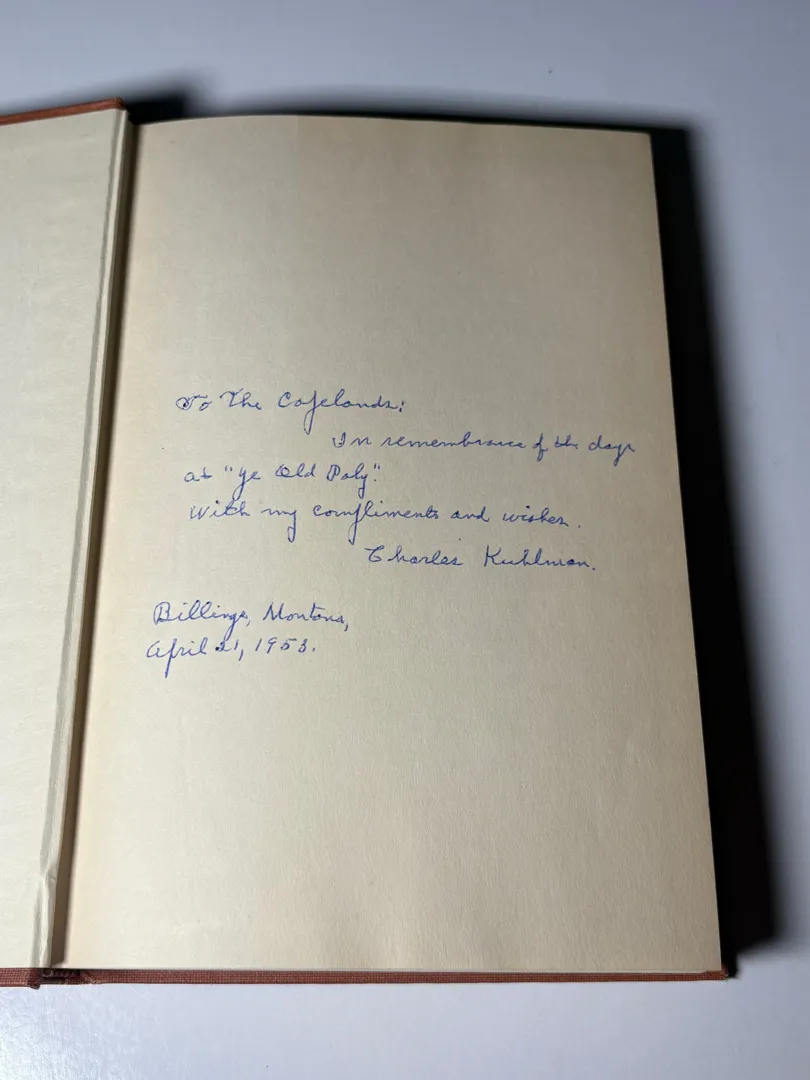 To The Copelands:
In remembrance of the days
at "ye Old Poly".
With my compliments and wishes.
Charles Kuhlman.
Billings, Montana,
April 21, 1953.